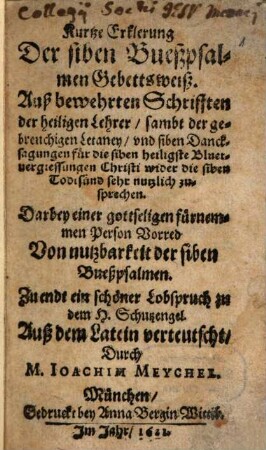 Kurtze Erklerung
Der siben Bueßpsal-
men Gebettsweiß.
Auß bewehrten Schrifften
der heiligen Lehrer / sambt der ge-
breuchigen Letaney / vnd siben Danck-
sagungen für die siben heiligste Bluet-
uergiessungen Christi wider die siben
Todtsünd sehr nutzlich zu-
sprechen.
Darbey einer gottseligen fürnem-
men Person Vorred
Von nutzbarkeit der siben
Bueßpsalmen.
Zu endt ein schöner Lobspruch zu
dem H. Schutzengel.
Auß dem Latein verteutscht /
Durch
M. IOACHIM MEYCHEL.
München /
Gedruckt bey Anna Bergin Wittib.
Im Jahr /